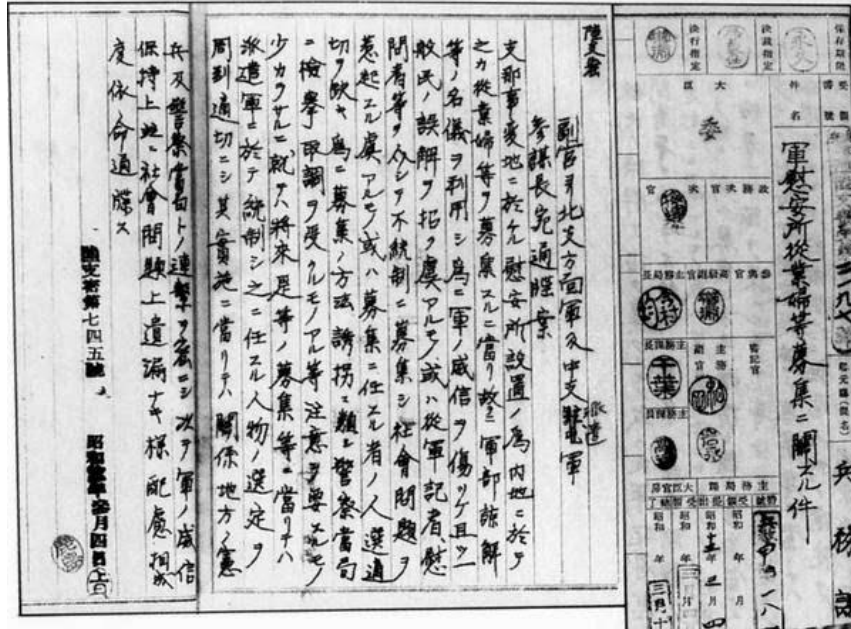 保存期限
永久
決裁指定
決行指定
受領番號
件名
軍慰安所從業婦等募集ニ關スル件
大臣
委
政務次官
次官
參與官
高級副官
主務局長
主務副官
主務課長
千葉
書記官
主務局課
大臣官房
昭和 年 月
昭和十三年三月
昭和 年 三月
陸支密
副官ヨリ北支方面軍及中支派遣軍
參謀長宛通牒案
支那事變地ニ於ケル慰安所設置ノ爲内地ニ於テ
之カ從業婦等ヲ募集スルニ當リ故ラニ軍部諒解
等ノ名儀ヲ利用シ爲ニ軍ノ威信ヲ傷ツケ且ツ一
般民ノ誤解ヲ招ク虞アルモノ或ハ從軍記者、慰
問者等ヲ介シテ不統制ニ募集シ社會問題ヲ
惹起スル虞アルモノ或ハ募集ニ任スル者ノ人選適
切ヲ欠キ爲ニ募集ノ方法誘拐ニ類シ警察當局
ニ檢擧取調ヲ受クルモノアル等注意ヲ要スルモノ
少カラサルニ就テハ將來是等ノ募集等ニ當リテハ
派遣軍ニ於テ統制シ之ニ任スル人物ノ選定ヲ
周到適切ニシ其實施ニ當リテハ關係地方ノ憲
兵及警察當局トノ連繫ヲ密ニシ以テ軍ノ威信
保持上並ニ社會問題上遺漏ナキ樣配慮相成
度依命通牒ス
陸支密第七四五號
昭和拾參年參月四日